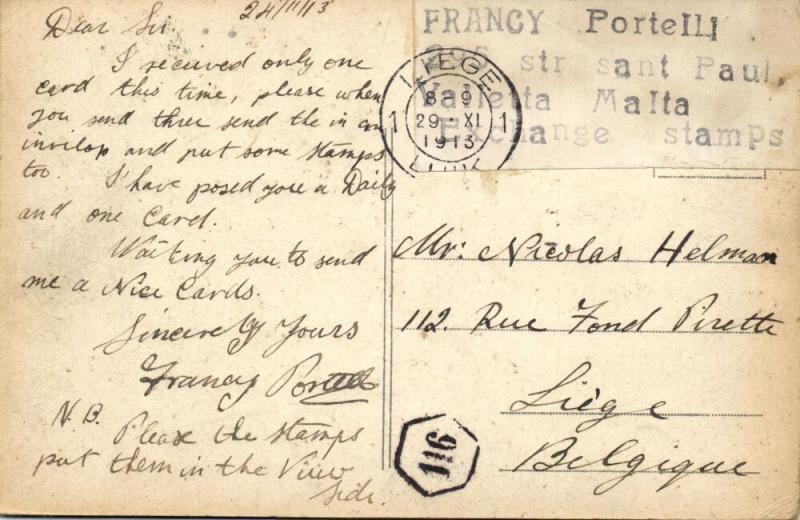 24/11/13
Dear Sir.
I received only one
card this time, please when
you send three send the in an
invilop and put some stamps
too. I have posed you a Daily
and one Card.
Waiting you to send
me a Nice Cards.
Sincerely Yours
Francy Portelli
N.B. Please the stamps
put them in the View
side.
FRANCY Portelli
str sant Paul,
Valletta Malta
Exchange stamps
LIÈGE
1 8-9 1
29-XI
1913
LUIK
Mr: Nicolas Helman
112. Rue Fond Pirette
Liège
Belgique
116